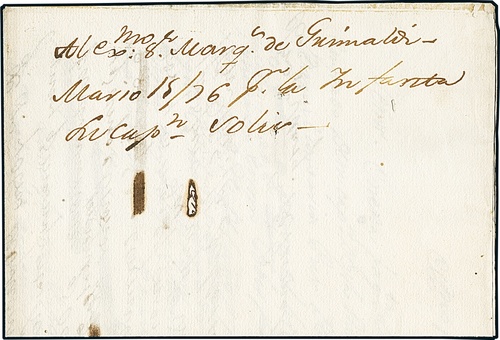 Al Ex.mo S.r Marq.s de Grimaldi -
Marzo 15/76 p.r la Infanta
Su Cap.n Solis -